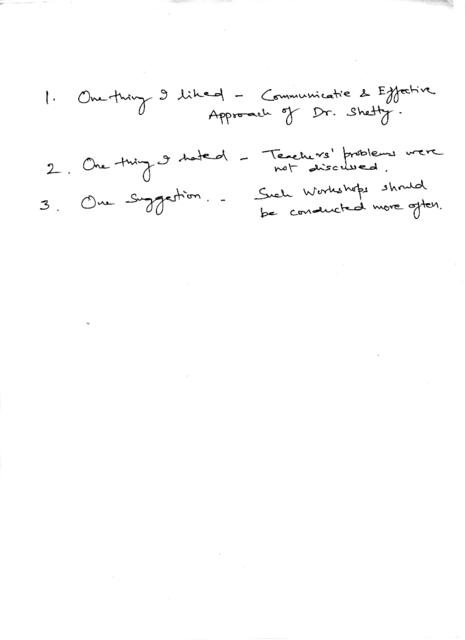 1. One thing I liked - Communicatie & Effective
Approach of Dr. Shetty.
2. One thing I hated - Teachers' problems were
not discussed.
3. One Suggestion. - Such Workshops should
be conducted more often.